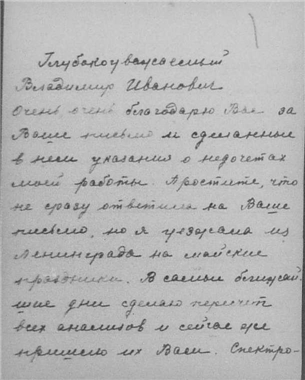 Глубокоуважаемый
Владимир Иванович
Очень очень благодарю Вас за
Ваше письмо и сделанные
в нем указания о недочетах
моей работы. Простите, что
не сразу ответила на Ваше
письмо, но я уезжала из
Ленинграда на майские
праздники. В самые ближай-
шие дни сделаю пересчет
всех анализов и сейчас же
пришлю их Вам. Спектро-